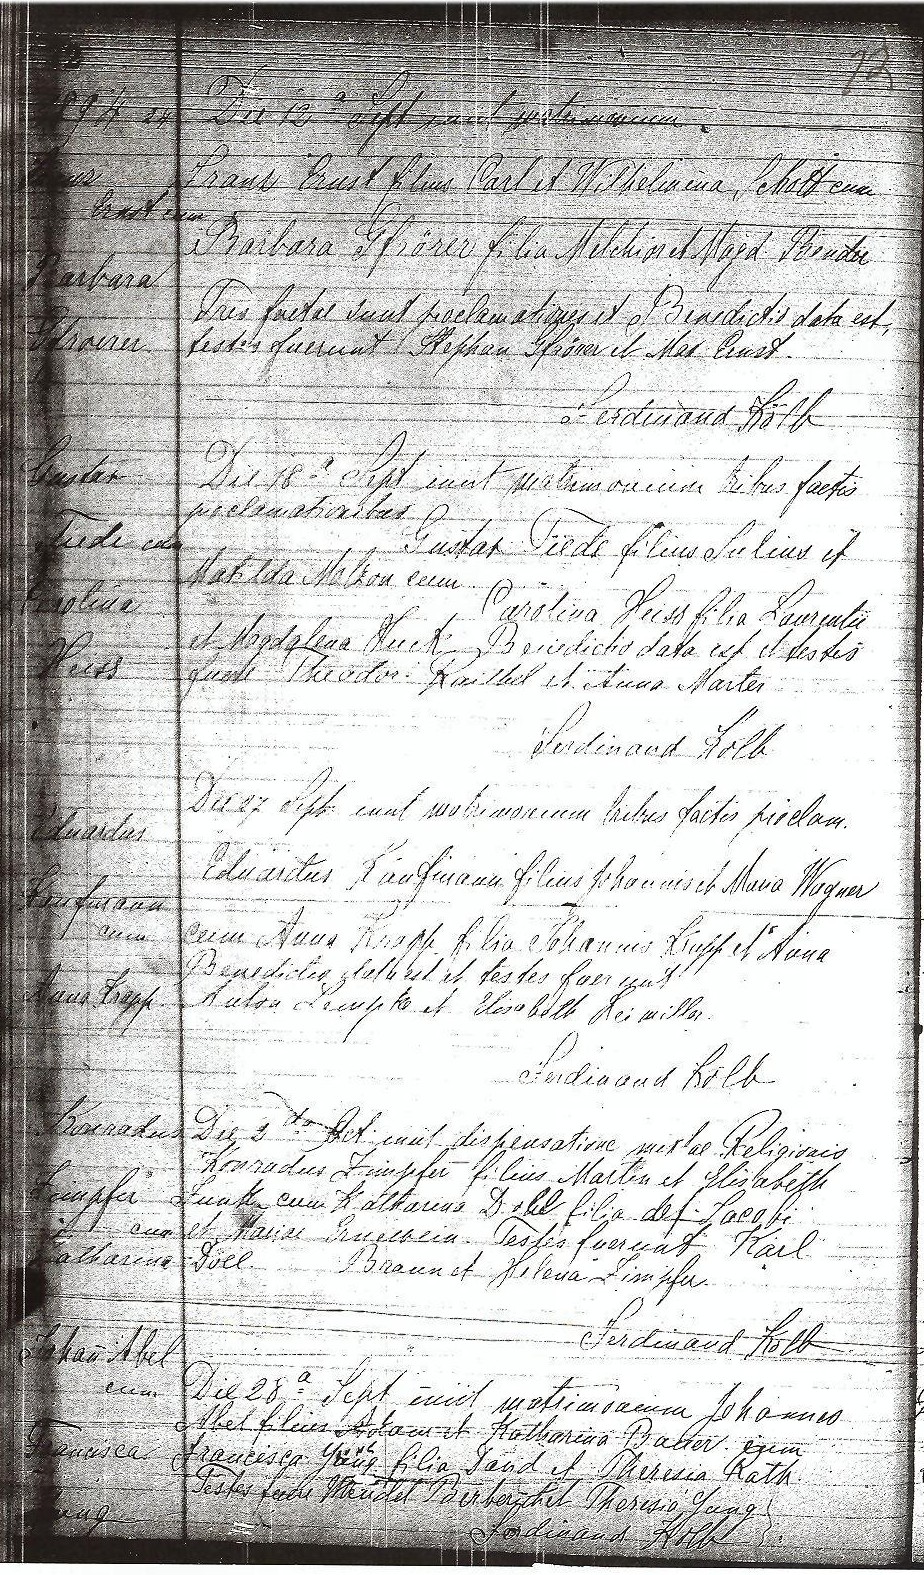 12
Die 12a Sept iniit matrimonium
Franz Ernst filius Carl et Wilhelmina Schott cum
Ernst cum
Barbara Gfrörer filia Melchior et Magd Bender
Barbara
Tres factae sunt proclamationes et Benedictio data est,
Gfroerer testes fuerunt Stephan Gfrörer et Max Ernst.
Ferdinand Kolb
Gustav Die 18a Sept iniit matrimonium tribus factis
proclamationibus
Tiede cum Gustav Tiede filius Julius et
Matilda cum
Carolina Carolina Heiss filia Laurentii
et Magdalena Huck Benedictio data est et testes
Heiss fuere Theodor et Anna Marter
Ferdinand Kolb
Die 27 Sept iniit matrimonium tribus factis proclam.
Eduardus
Eduardus Kaufmann filius Johannis et Maria Wagner
Kaufmann
cum cum Anna Krapp filia Johannis Krapp et Anna
Benedictio data est et testes fuerunt
Anna Krapp Anton Lempke et Elisabeth
Ferdinand Kolb
Konradus Die 2do Oct iniit dispensatione mixtae Religionis
Konradus Zimpfer filius Martin et Elisabeth
Zimpfer Funk cum Katharina Doll filia def. Jacobi
cum et Mariae Testes fuerunt Karl
Katharina Doll Braun et Helena Zimpfer.
Ferdinand Kolb
Johan Abel
cum Die 28a Sept iniit matrimonium Johannes
Abel filius Adam et Katharina Bauer cum
Francisca Francisca Yung filia David et Theresia Rath
Testes fuere Wendel et Theresia Yung
Yung Ferdinand Kolb